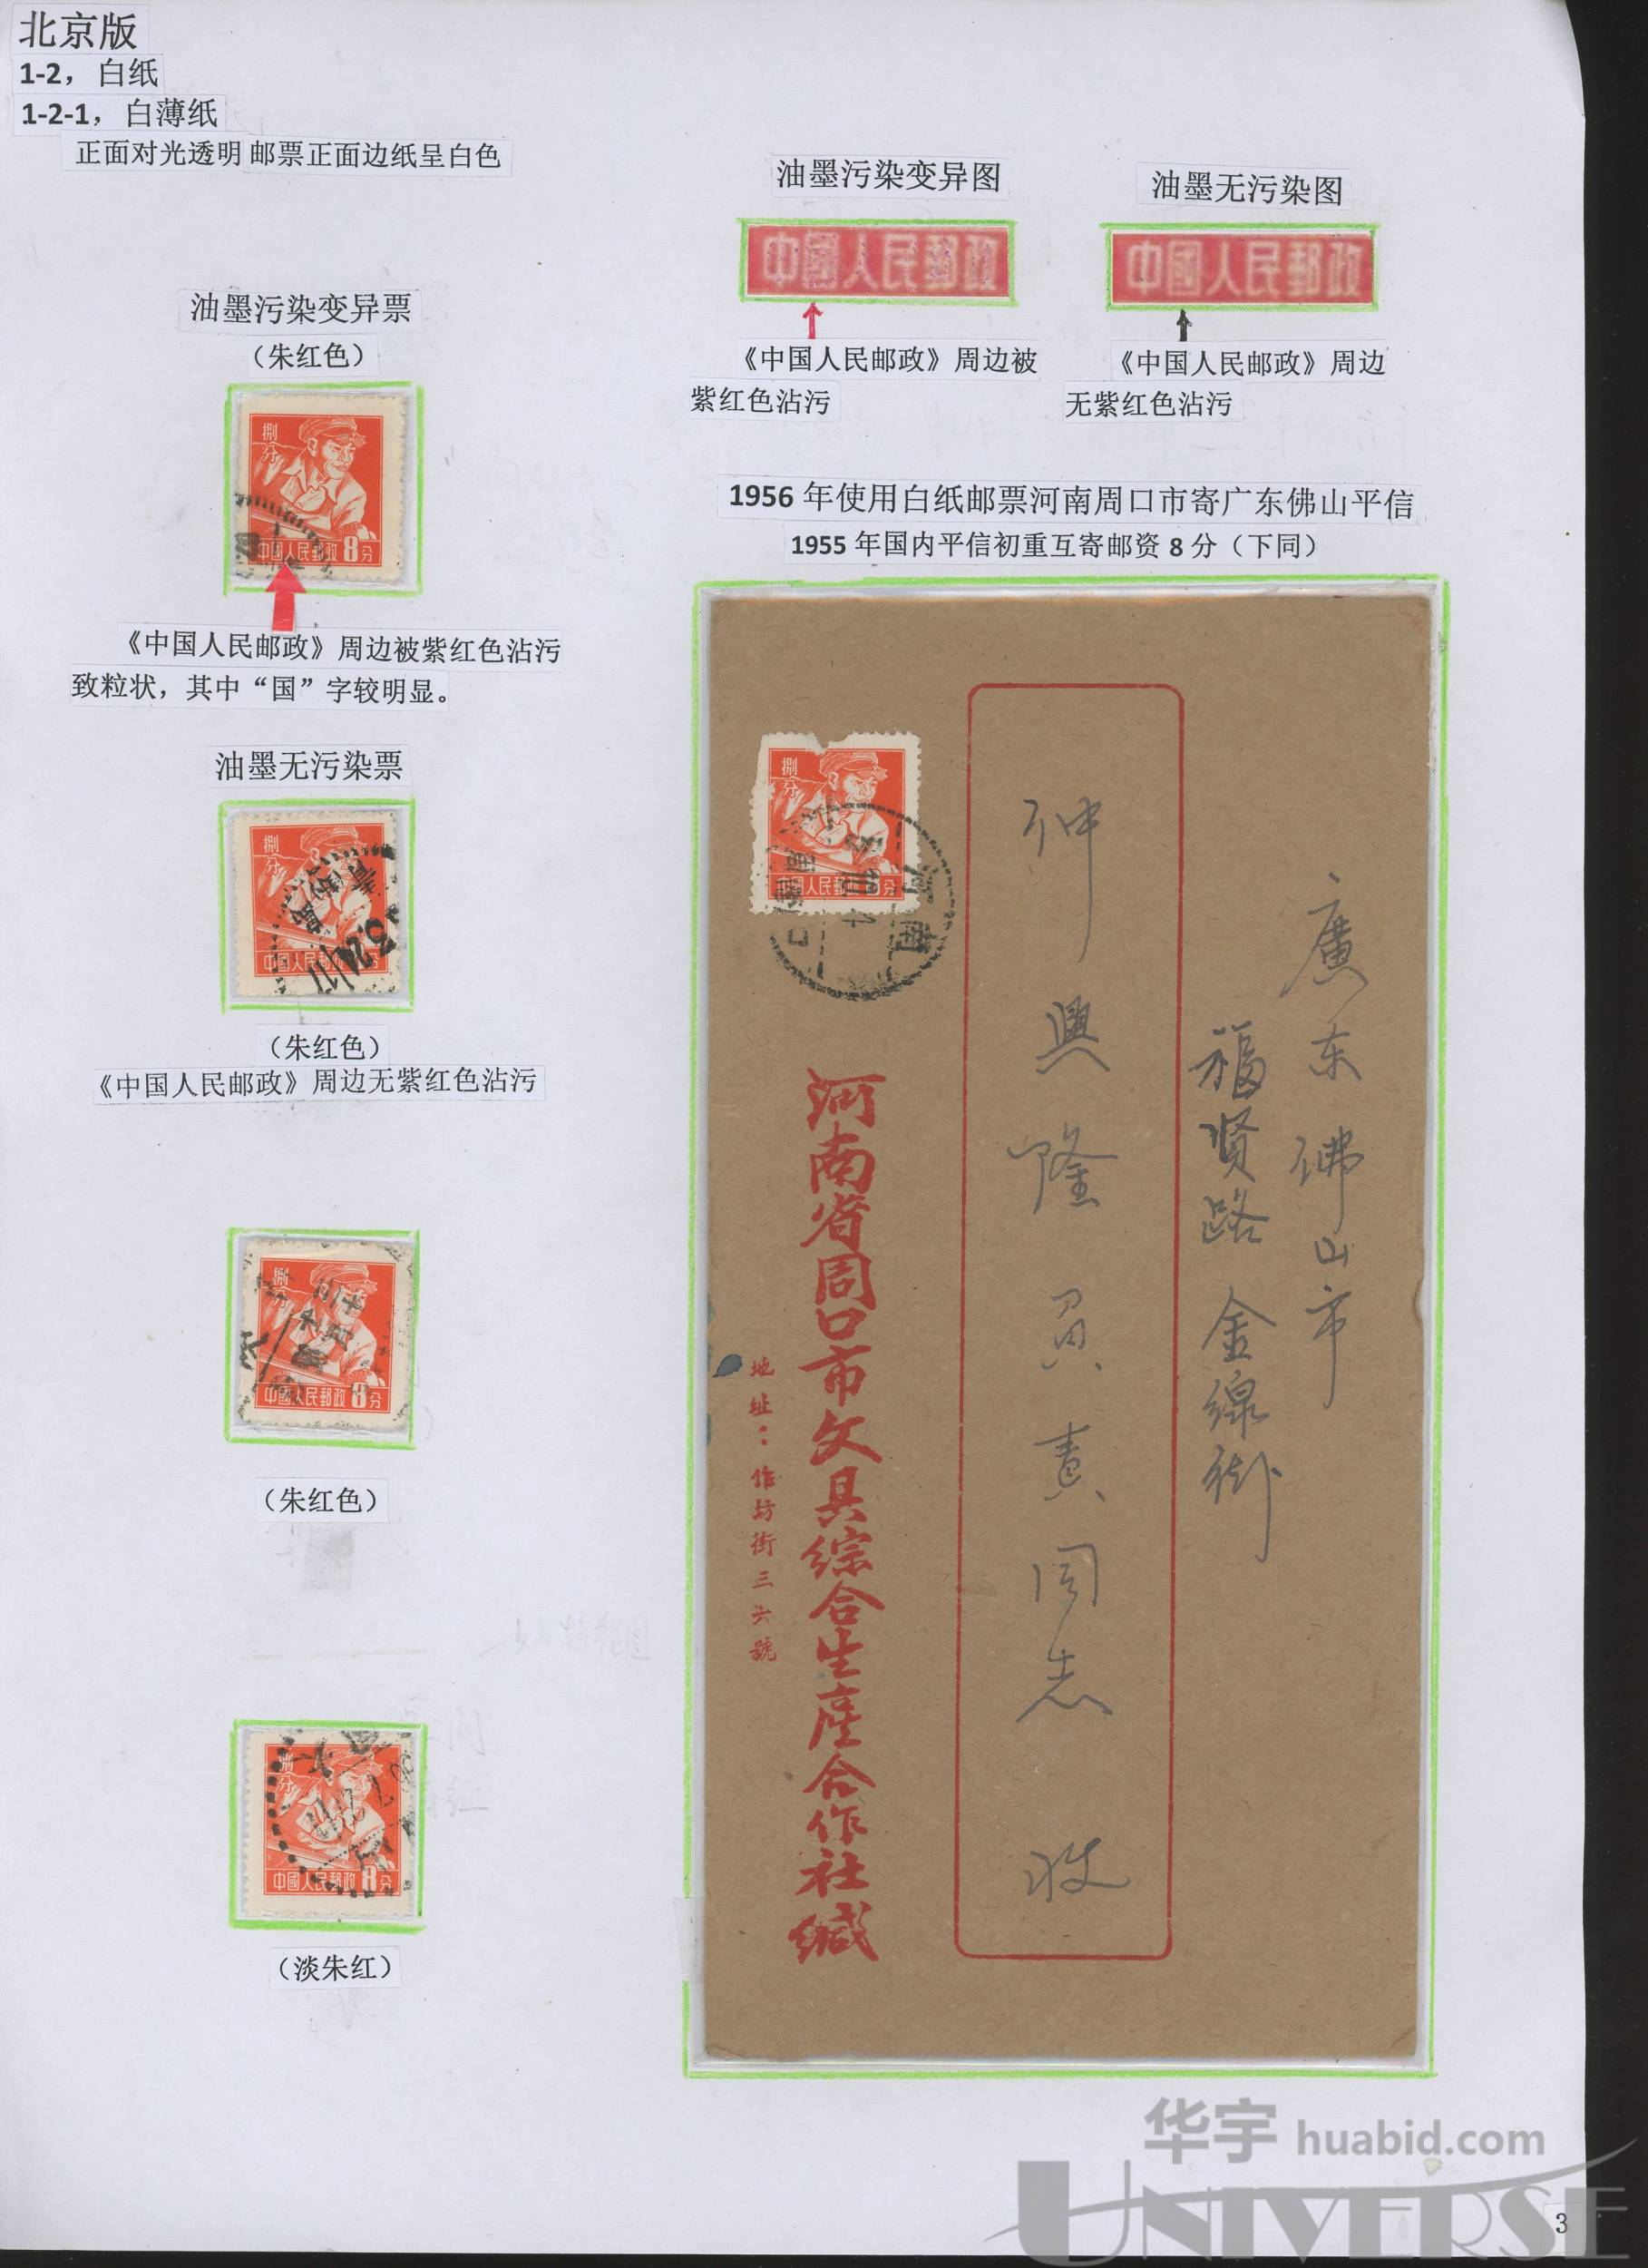 北京版
1-2，白纸
1-2-1，白薄纸
正面对光透明 邮票正面边纸呈白色
油墨污染变异图
中國人民郵政
《中国人民邮政》周边被
紫红色沾污
油墨无污染图
中國人民郵政
《中国人民邮政》周边
无紫红色沾污
油墨污染变异票
（朱红色）
捌
分
中國人民郵政 8分
《中国人民邮政》周边被紫红色沾污
致粒状，其中“国”字较明显。
油墨无污染票
捌
分
中國人民郵政
（朱红色）
《中国人民邮政》周边无紫红色沾污
捌
中國人民郵政 8分
（朱红色）
分
中國人民郵政 8分
（淡朱红）
1956 年使用白纸邮票河南周口市寄广东佛山平信
1955 年国内平信初重互寄邮资 8 分（下同）
捌
分
中國人民郵政 8分
河南
廣东佛山市
福贤路金線街
興隆
责同志 收
河南省周口市文具綜合生產合作社緘
地址：作坊街三六號
华宇 huabid.com
UNIVERSE
3